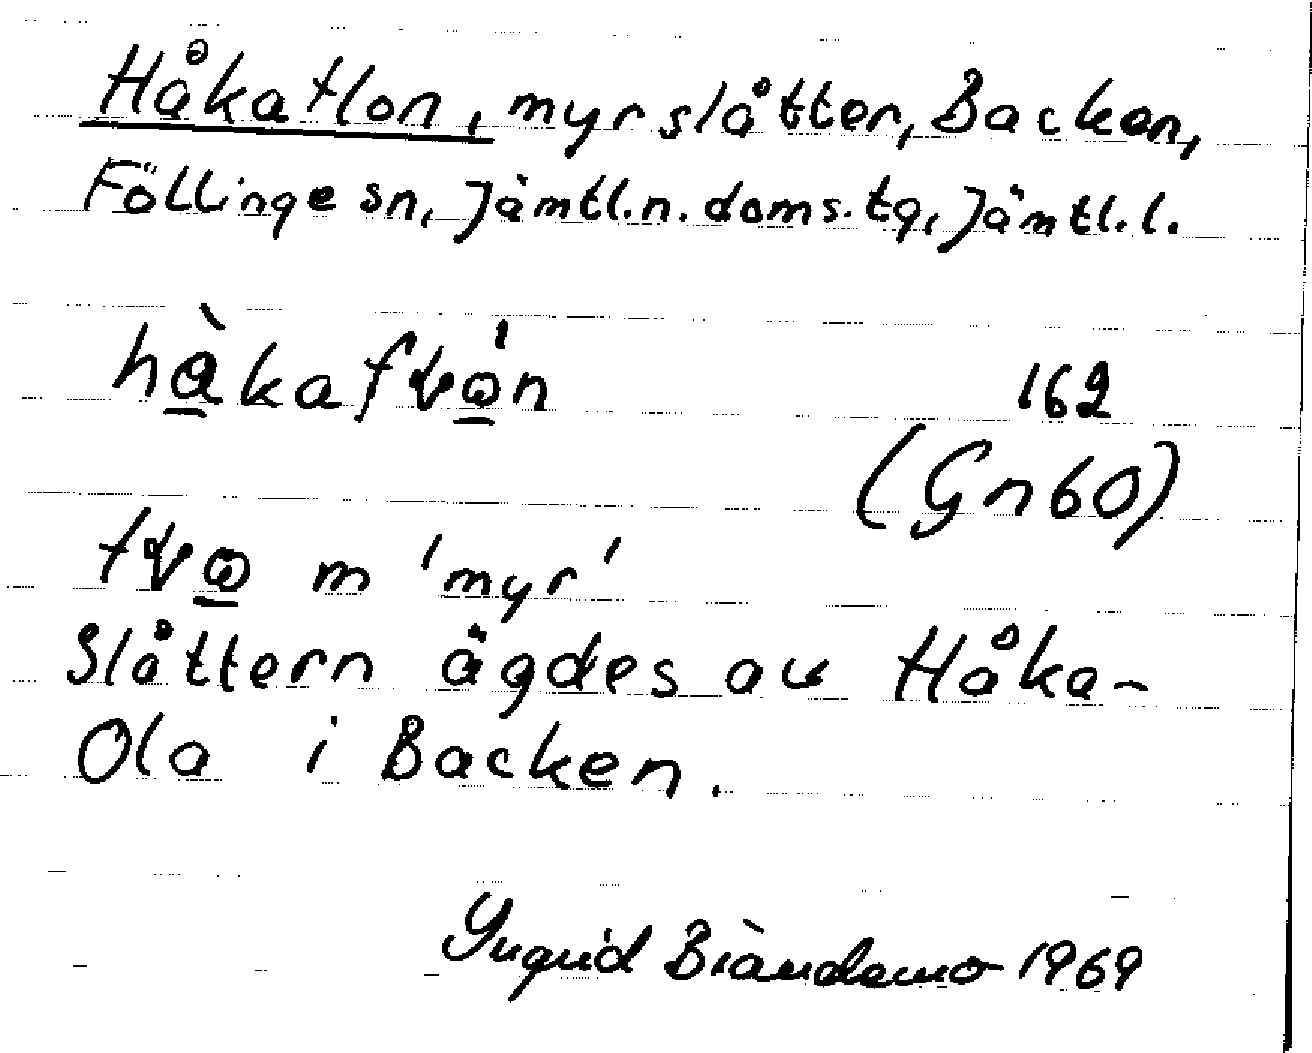 Håkaflon, myrslåtter, Backen,
Föllinge sn, Jämtl.n.doms.tg, Jämtl.l.
162
(Gn60)
m 'myr'
Slåttern ägdes av Håka-
Ola i Backen.
Ingrid Brändemo 1969